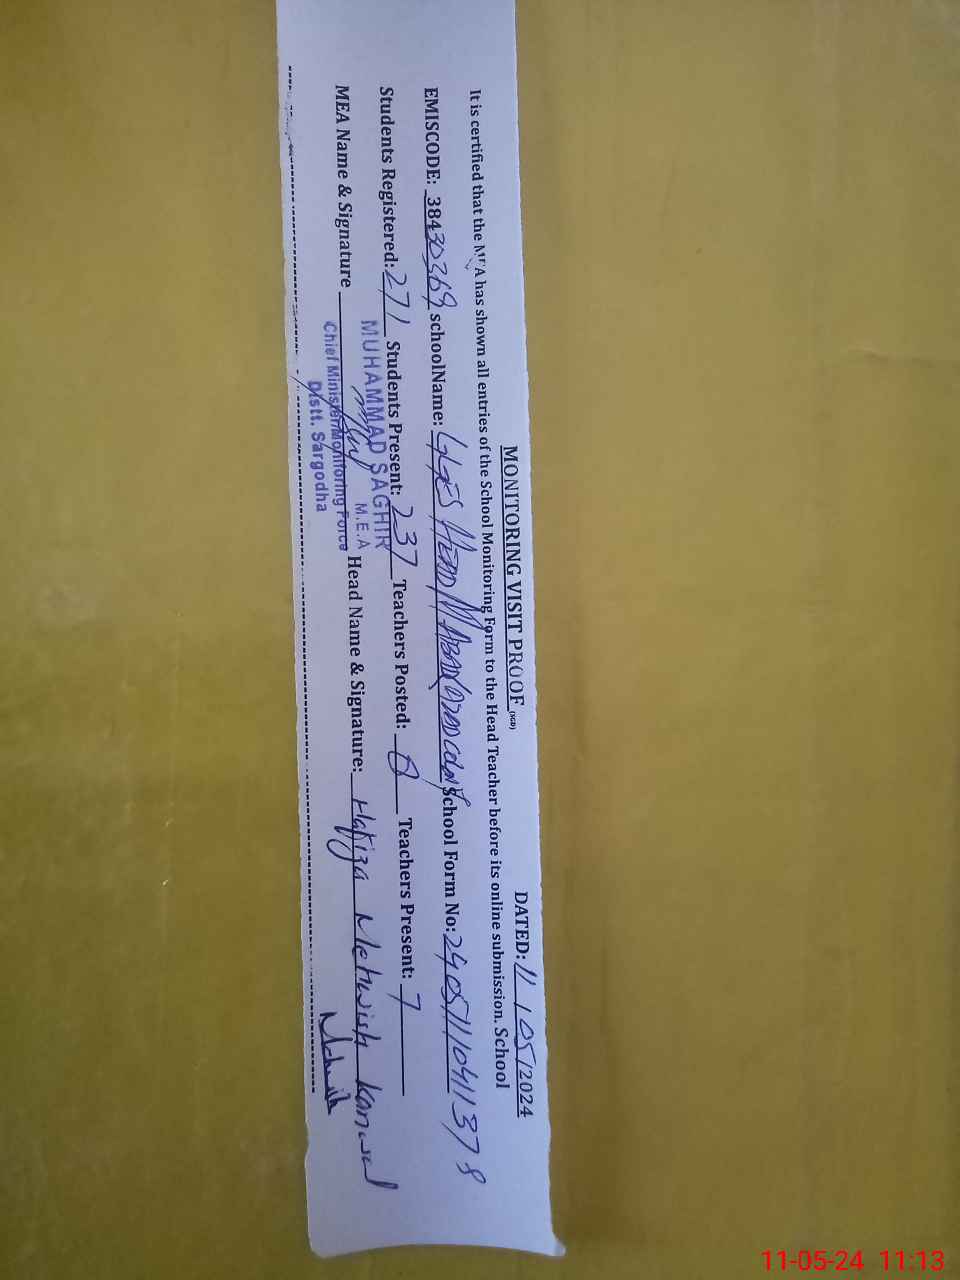 MONITORING VISIT PROOF (SGD)
DATED: 11/05/2024
It is certified that the MEA has shown all entries of the School Monitoring Form to the Head Teacher before its online submission. School
EMISCODE: 38430369 schoolName: GGES School Form No: 2405111041378
Students Registered: 271 Students Present: 237 Teachers Posted: 8 Teachers Present: 7
MEA Name & Signature Head Name & Signature: Hafiza Mehwish Kanwal
Mehwish
MUHAMMAD SAGHIR
M.E.A
Chief Minister Monitoring Force
Distt. Sargodha
11-05-24 11:13